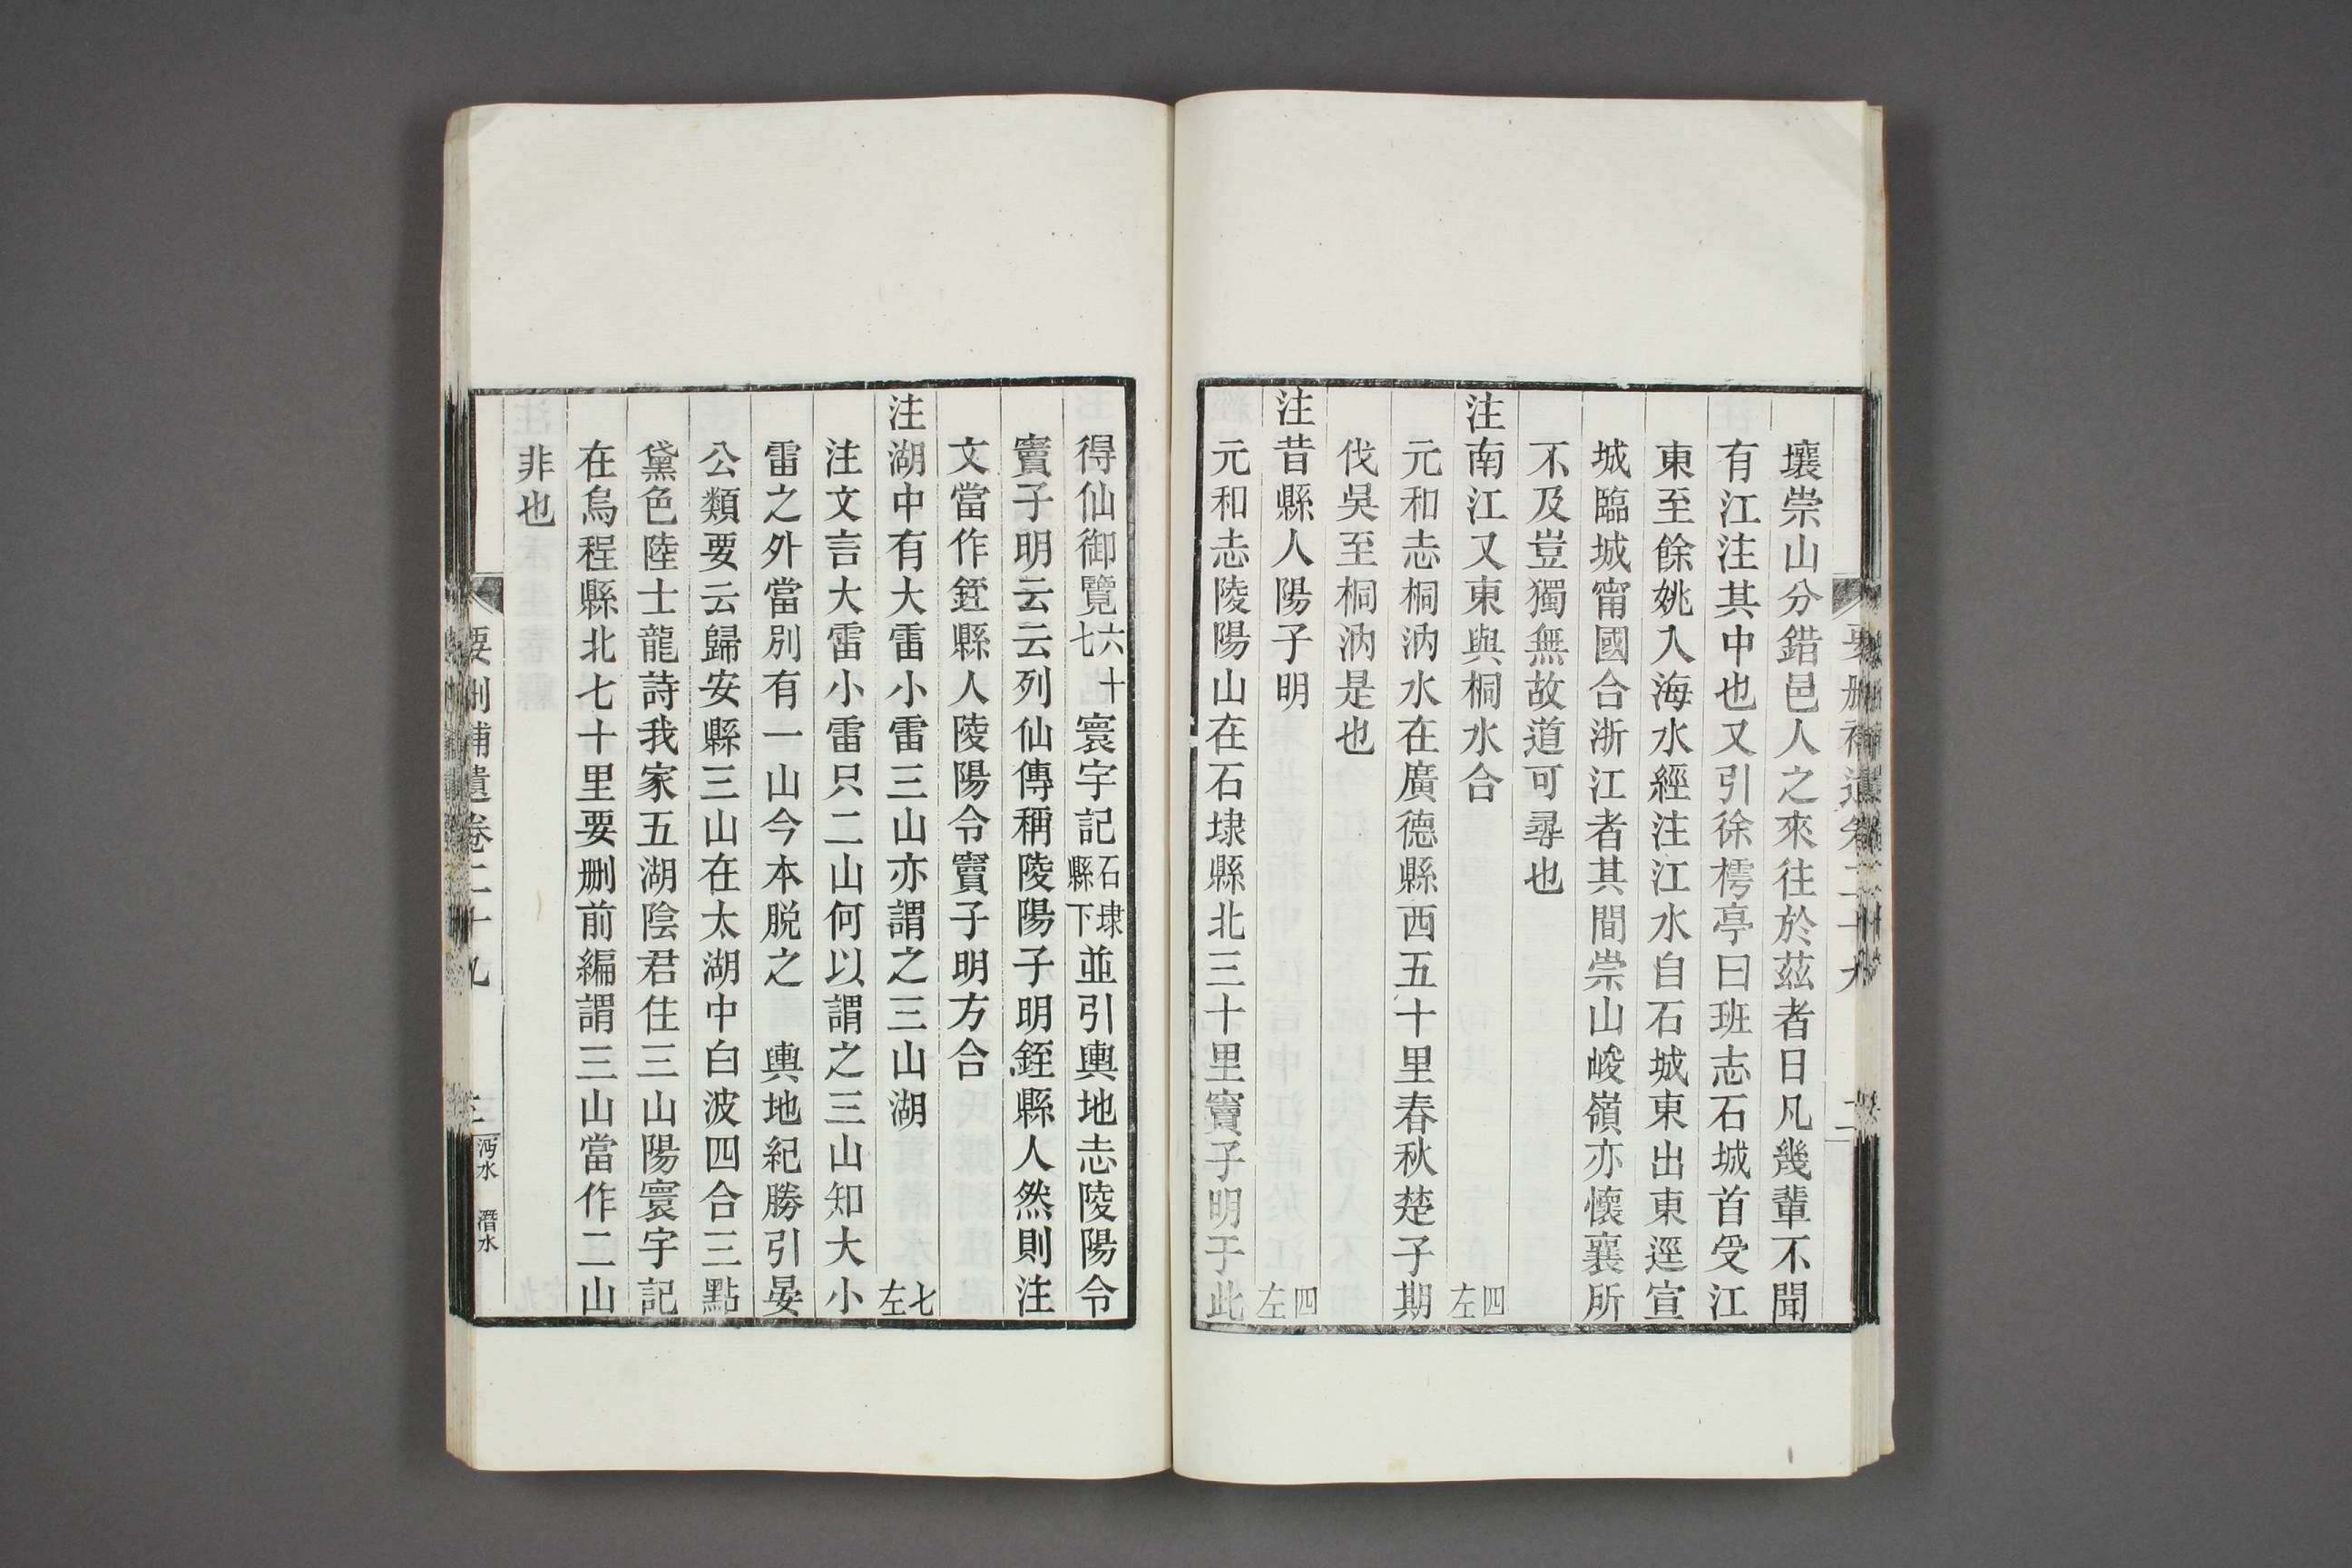 壤崇山分錯邑人之來往於茲者日凡幾輩不聞
有江注其中也又引徐樗亭曰班志石城首受江
東至餘姚入海水經注江水自石城東出東逕宣
城臨城甯國合浙江者其間崇山峻嶺亦懷襄所
不及豈獨無故道可尋也
注南江又東與桐水合 四左
元和志桐汭水在廣德縣西五十里春秋楚子期
伐吳至桐汭是也
注昔縣人陽子明 四左
元和志陵陽山在石埭縣北三十里竇子明于此
得仙御覽六十七寰宇記石埭縣下並引輿地志陵陽令
竇子明云云列仙傳稱陵陽子明銍縣人然則注
文當作銍縣人陵陽令竇子明方合
注湖中有大雷小雷三山亦謂之三山湖 七左
注文言大雷小雷只二山何以謂之三山知大小
雷之外當別有一山今本脱之 輿地紀勝引晏
公類要云歸安縣三山在太湖中白波四合三點
黛色陸士龍詩我家五湖陰君住三山陽寰宇記
在烏程縣北七十里要刪前編謂三山當作二山
非也
要刪補遺卷二十九 三 沔水 潛水